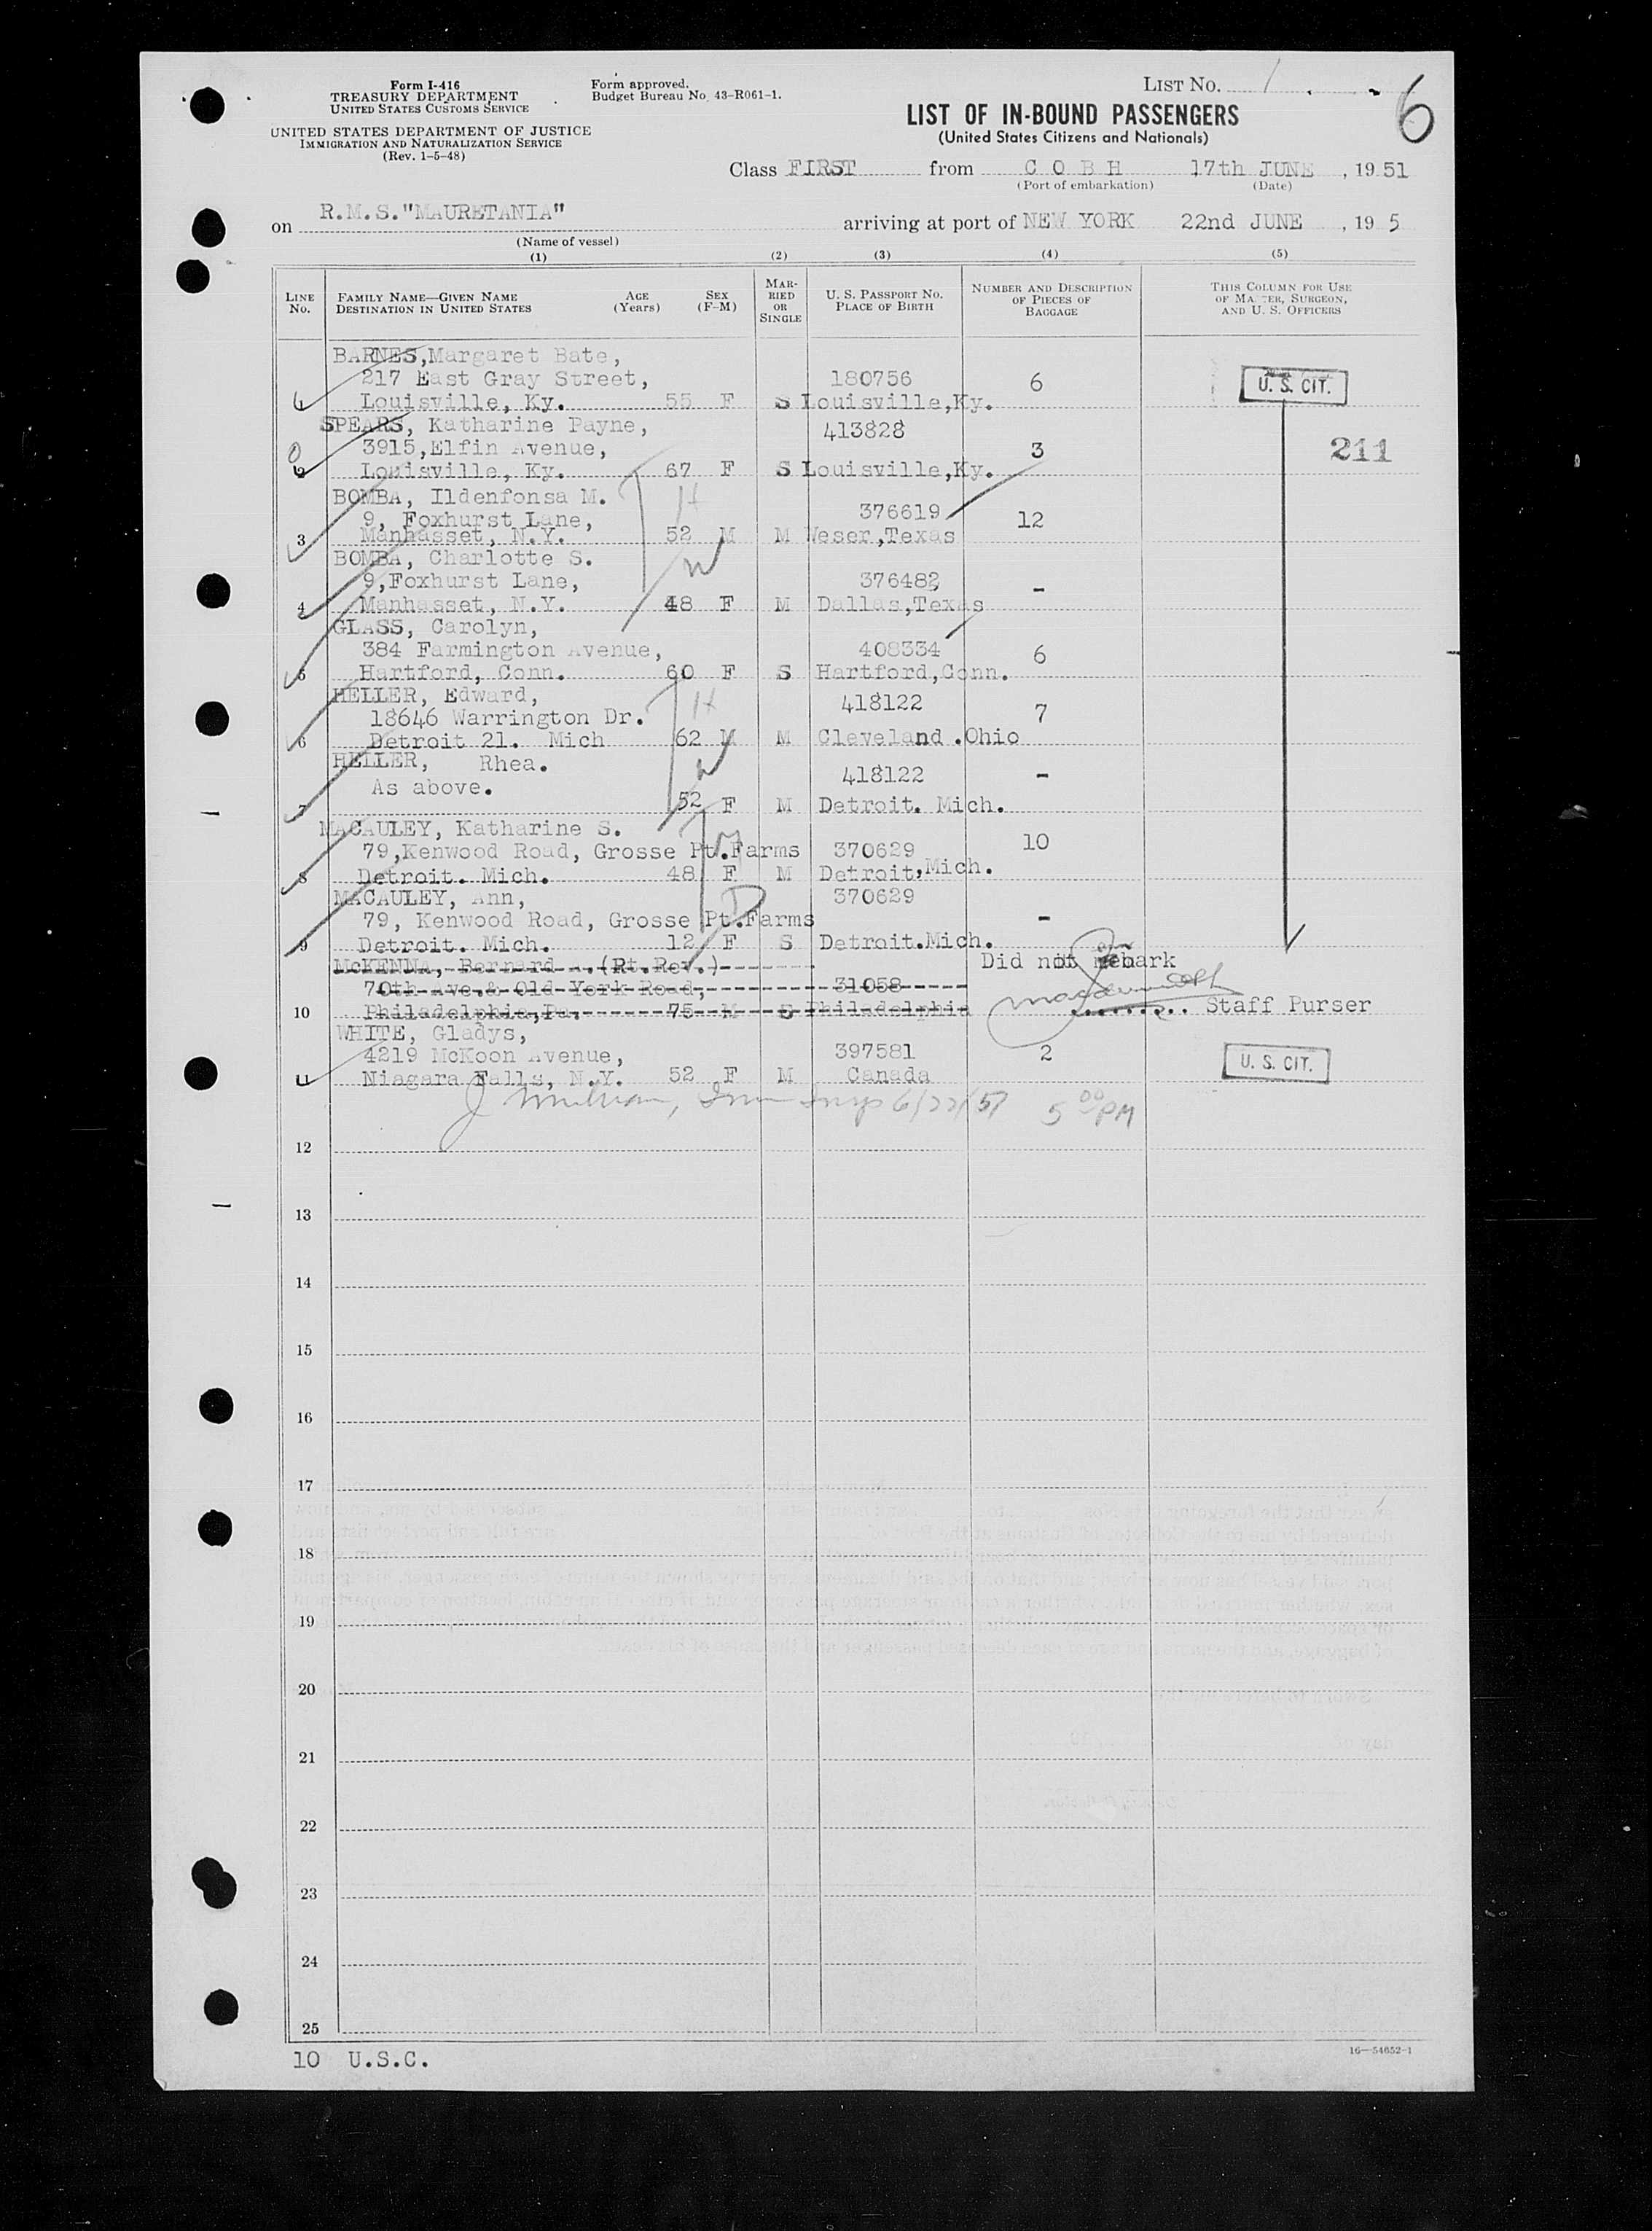 Form I-416
TREASURY DEPARTMENT
UNITED STATES CUSTOMS SERVICE
UNITED STATES DEPARTMENT OF JUSTICE
IMMIGRATION AND NATURALIZATION SERVICE
(Rev. 1-5-48)
Form approved.
Budget Bureau No. 43-R061-1.
LIST No. 1
6
LIST OF IN-BOUND PASSENGERS
(United States Citizens and Nationals)
Class FIRST from C O B H 17th JUNE , 19 51
(Port of embarkation) (Date)
on R.M.S."MAURETANIA" arriving at port of NEW YORK 22nd JUNE , 19 5
(Name of vessel)
(1) (2) (3) (4) (5)
LINE No. FAMILY NAME—GIVEN NAME DESTINATION IN UNITED STATES AGE (Years) SEX (F-M) MARRIED OR SINGLE U. S. PASSPORT No. PLACE OF BIRTH NUMBER AND DESCRIPTION OF PIECES OF BAGGAGE THIS COLUMN FOR USE OF MASTER, SURGEON, AND U. S. OFFICERS
BARNES,Margaret Bate,
217 East Gray Street, 180756 6 U. S. CIT.
1 Louisville, Ky. 55 F S Louisville,Ky.
SPEARS, Katharine Payne, 413828
3915,Elfin Avenue, 3 211
2 Louisville, Ky. 67 F S Louisville,Ky.
BOMBA, Ildenfonsa M. H
9, Foxhurst Lane, 376619 12
3 Manhasset, N.Y. 52 M M Weser,Texas
BOMBA, Charlotte S. W
9,Foxhurst Lane, 376482 -
4 Manhasset, N.Y. 48 F M Dallas,Texas
GLASS, Carolyn,
384 Farmington Avenue, 408334 6
5 Hartford, Conn. 60 F S Hartford,Conn.
HELLER, Edward, H 418122
18646 Warrington Dr. 7
6 Detroit 21. Mich 62 M M Cleveland.Ohio
HELLER, Rhea. W 418122 -
As above.
7 52 F M Detroit. Mich.
MACAULEY, Katharine S.
79,Kenwood Road, Grosse Pt.Farms 370629 10
8 Detroit. Mich. 48 F M Detroit,Mich.
MACAULEY, Ann, D 370629
79, Kenwood Road, Grosse Pt.Farms -
9 Detroit. Mich. 12 F S Detroit.Mich.
McKENNA, Bernard A.(Rt.Rev.) Did not embark
70th Ave.& Old York Road, 31058
10 Philadelphia,Pa. 75 M S Philadelphia Staff Purser
WHITE, Gladys,
4219 McKoon Avenue, 397581 2 U. S. CIT.
11 Niagara Falls, N.Y. 52 F M Canada
6/22/51 5 00 PM
12
13
14
15
16
17
18
19
20
21
22
23
24
25
10 U.S.C.
16—54652-1